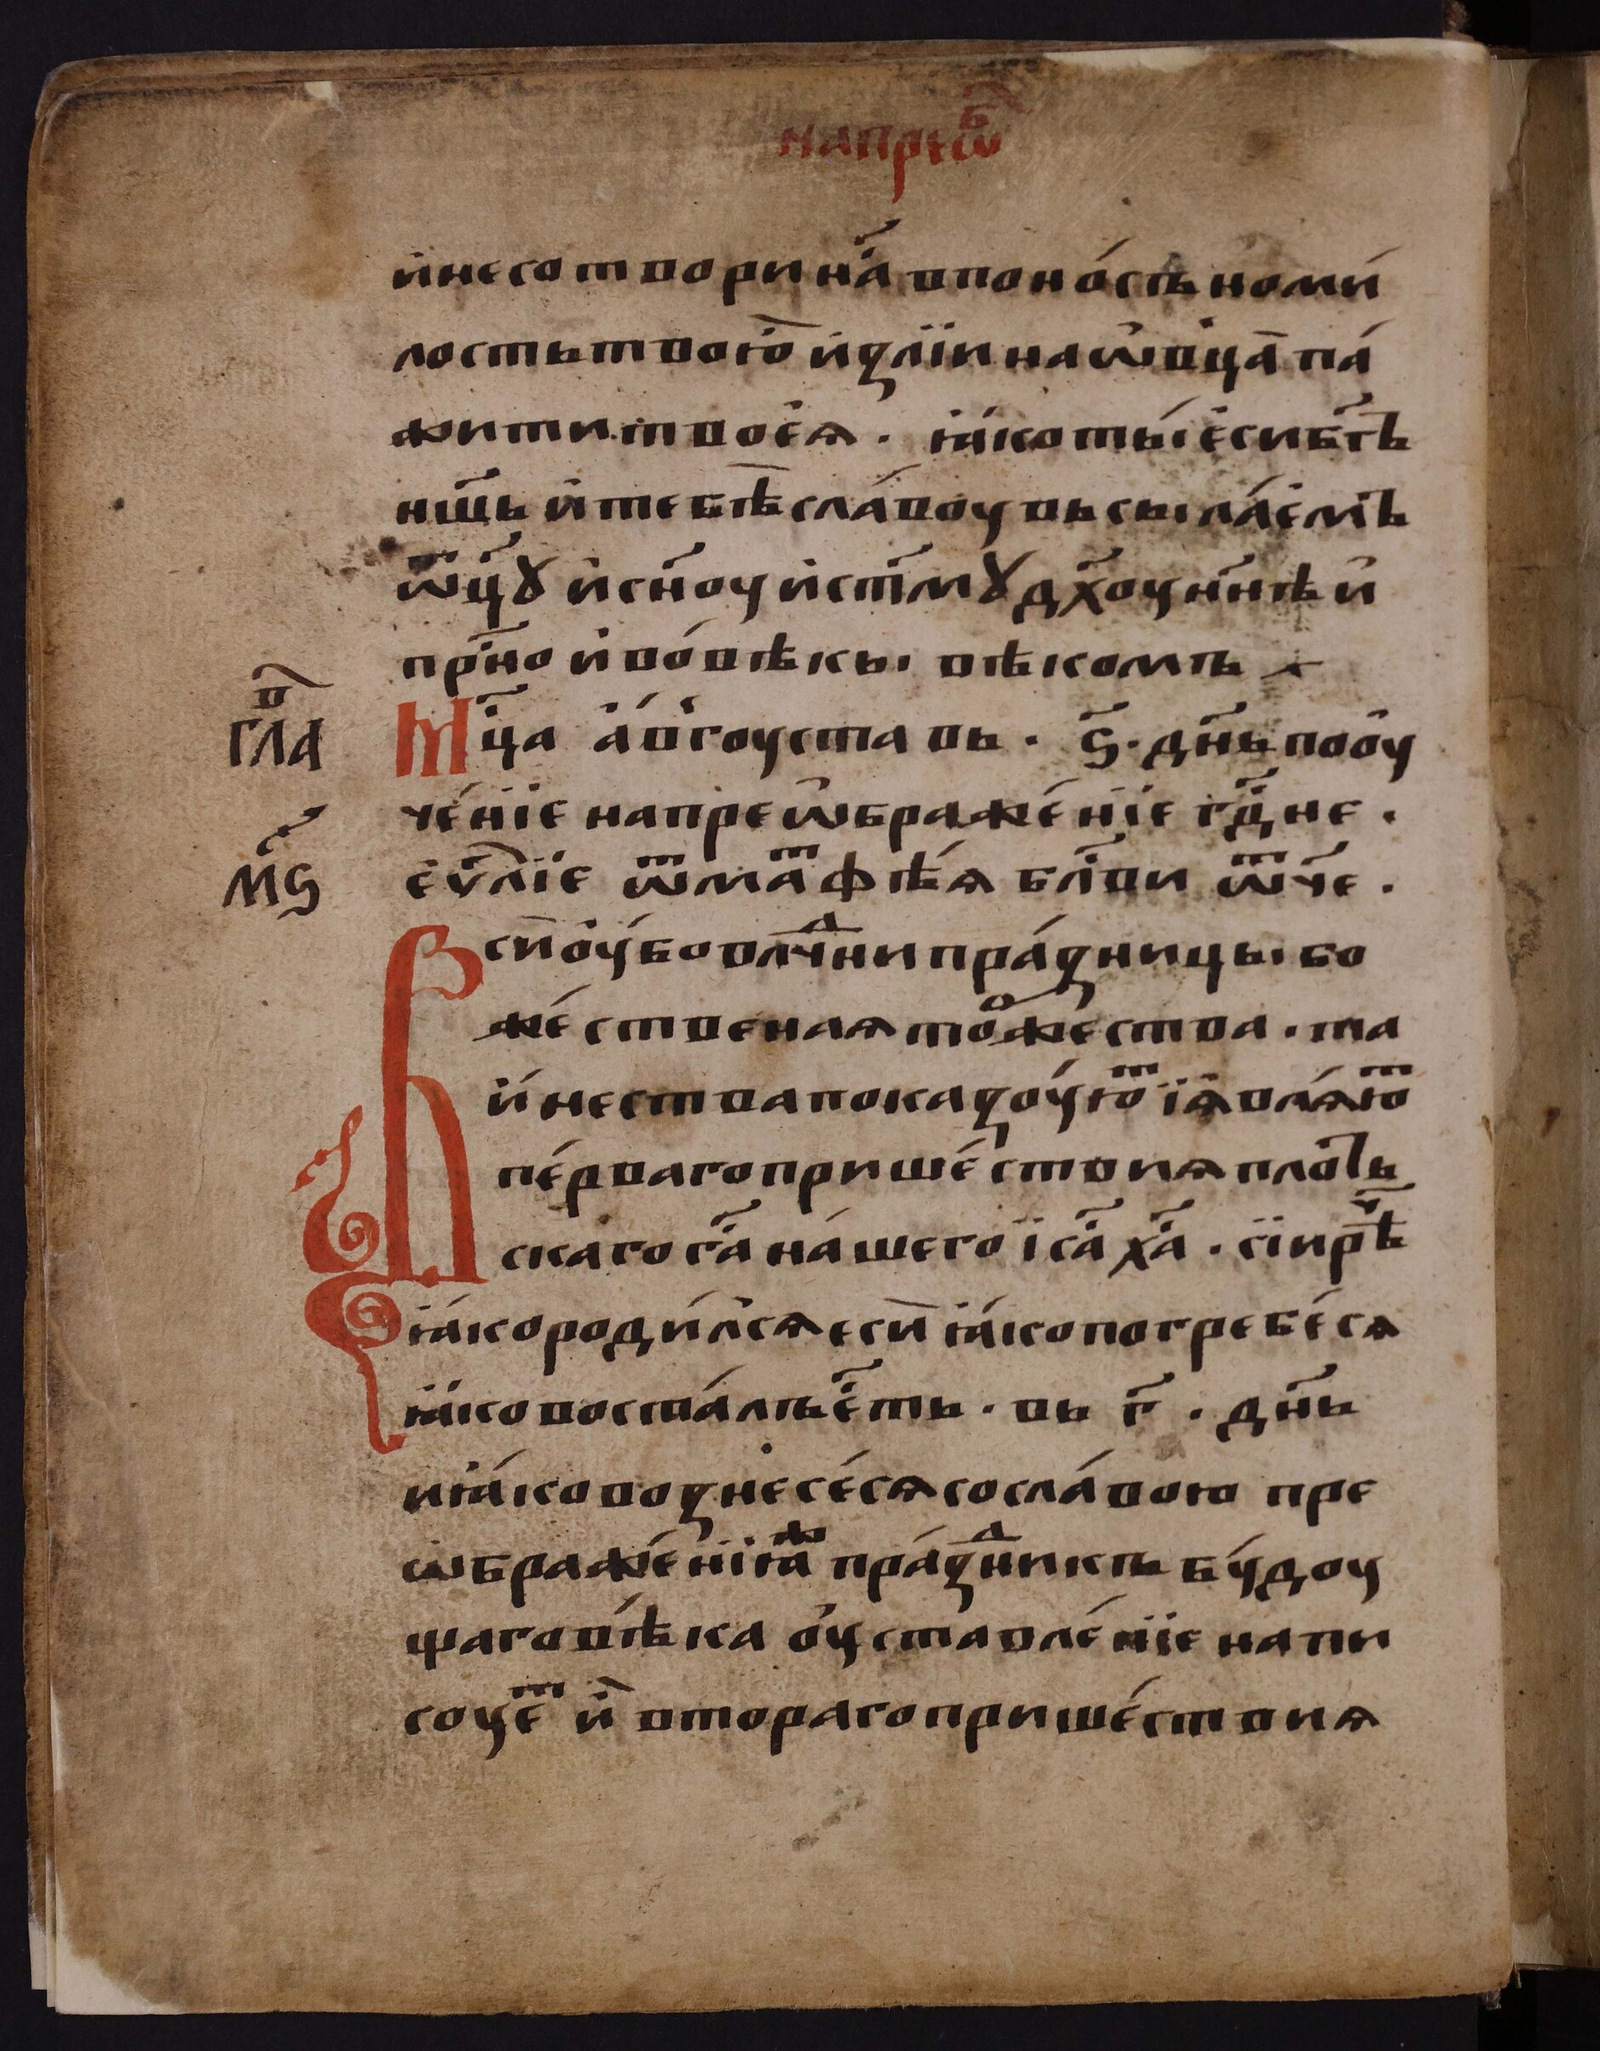 напреѡ҃б
и҆несотворина́съвпоно́съноми́
лостьтвою̀ и҆ злїи наѡ҆вца̀ па́
жититвоеѧ̀ . ꙗ҆́коты̀ е҆сибг҃ъ
на́шь и҆ тебѣ̀сла́воу въсыла́емъ
ѡ҆ц҃ꙋ и҆ сн҃оу и҆ ст҃мꙋ дх҃оу нн҃ѣ и҆
пр҃но и҆ во́вѣкы вѣкомъ
гла в҃
мц҃а а҆́вгоуста въ . ѕ҃ . дн҃ь пооу
че́нїе напреѡ҆браже́нїе гд҃не .
м҃ѕ
е҆ѵⷢ҇лїе ѿматфѣ́ѧ бл҃ви ѿче .
Вси оу҆́бо влⷣчни пра́зницы бо
же́ственаѧ то́ржества . та
и́нества показоу́ютъ ї҆ꙗвлѧ́ютъ
пе́рваго прише́ствиѧ плоть
скаго гⷭ҇а на́шего і҆с҃а х҃а . си́ирѣчь
ꙗ҆́ко роди́лсѧ есть ꙗ҆́ко погребе́сѧ
ꙗ҆́ко воста́лъ е҆́сть . въ г҃ . дн҃ь
и ꙗ҆́ко вознесе́сѧ со сла́вою пре
ѡ҆браже́нїꙗже пра́здникъ бу́доу
щаго вѣ́ка оу҆ставле́нїе напи
соуетъ и҆ второго прише́ствиѧ